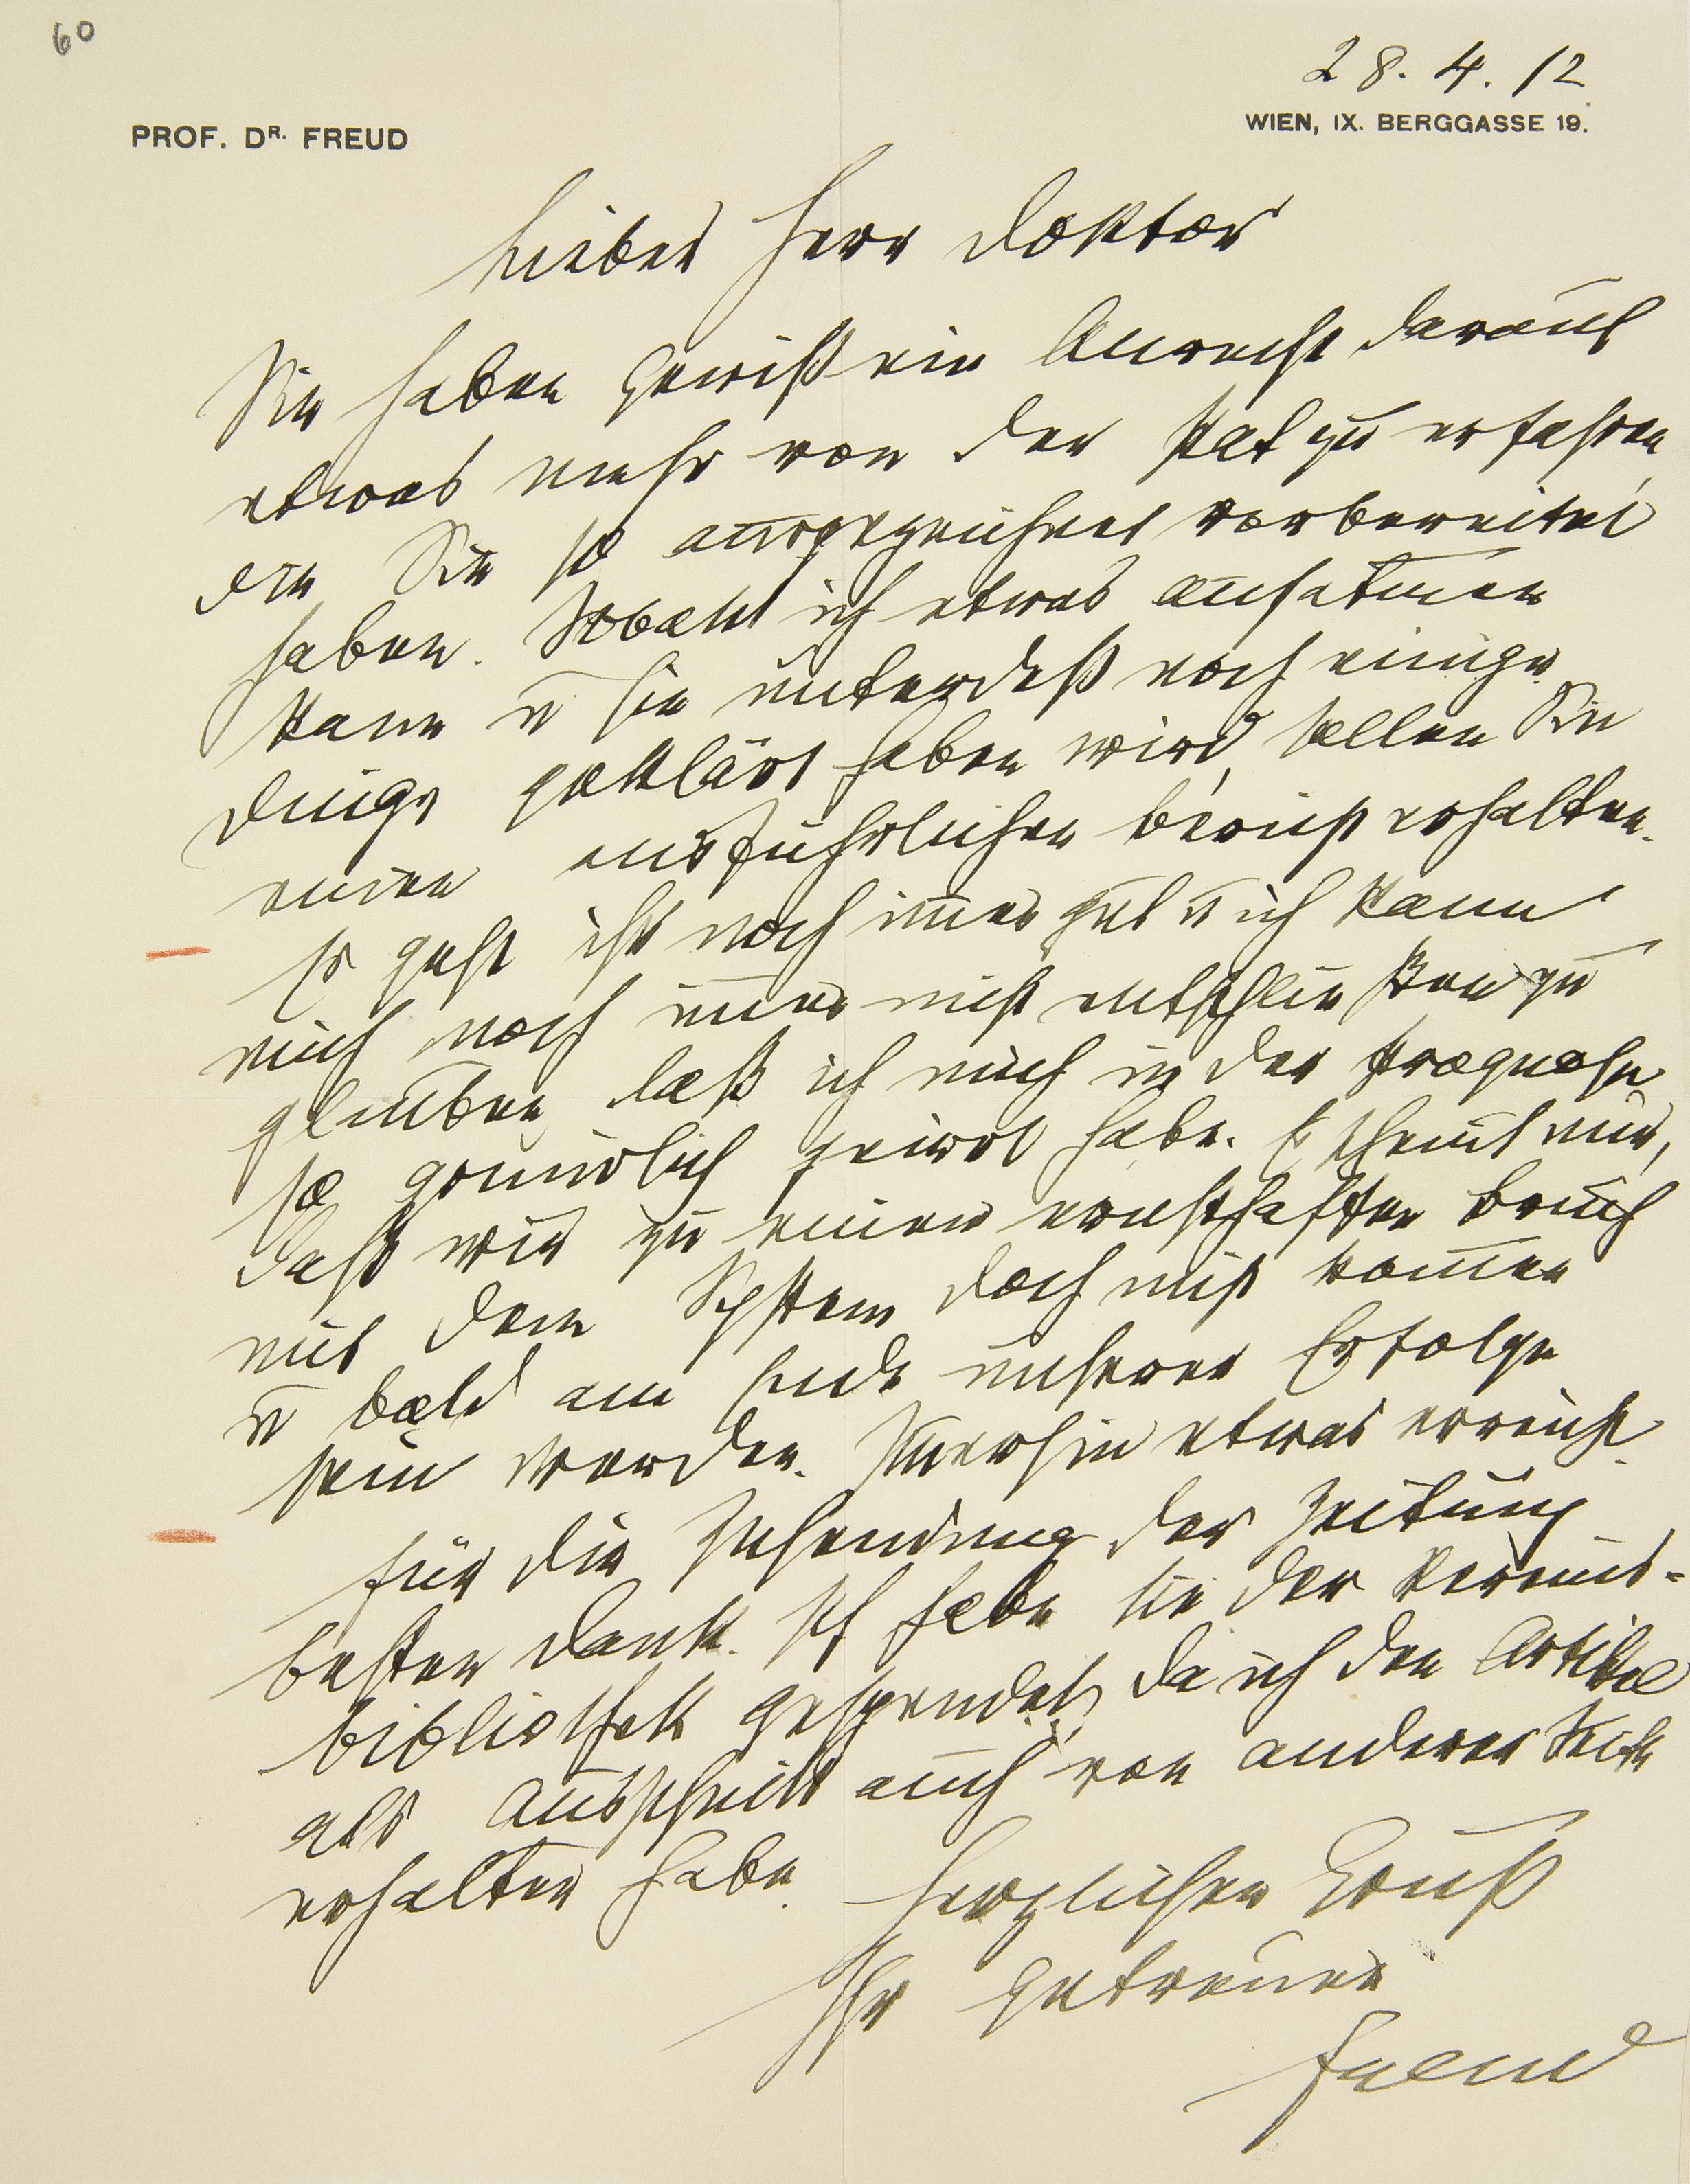 60
28. 4. 12
PROF. DR. FREUD
WIEN, IX. BERGGASSE 19.
Lieber Herr Doktor
Sie haben gewiß ein Anrecht darauf
etwas mehr von der Pat zu erfahren,
die Sie so ausgezeichnet vorbereitet
haben. Sobald ich etwas aufatmen
kann u sie unterdeß noch einige
Dinge geklärt haben wird, sollen Sie
einen ausführlichen Bericht erhalten.
Es geht ihr noch immer gut u ich kann
mich noch immer nicht entschließen zu
glauben, daß ich mich in der Prognose
so gründlich geirrt habe. Es scheint mir,
daß wir zu einem ernsthaften Bruch
mit dem System doch nicht kommen
u bald am Ende unserer Erfolge
sein werden. Immerhin etwas erreicht.
Für die Zusendung der Zeitung
besten Dank. Ich habe sie der Vereins-
bibliothek gespendet, da ich den Artikel
als Ausschnitt auch von anderer Seite
erhalten habe.
Herzlichen Gruß
Ihr getreuer
Freud